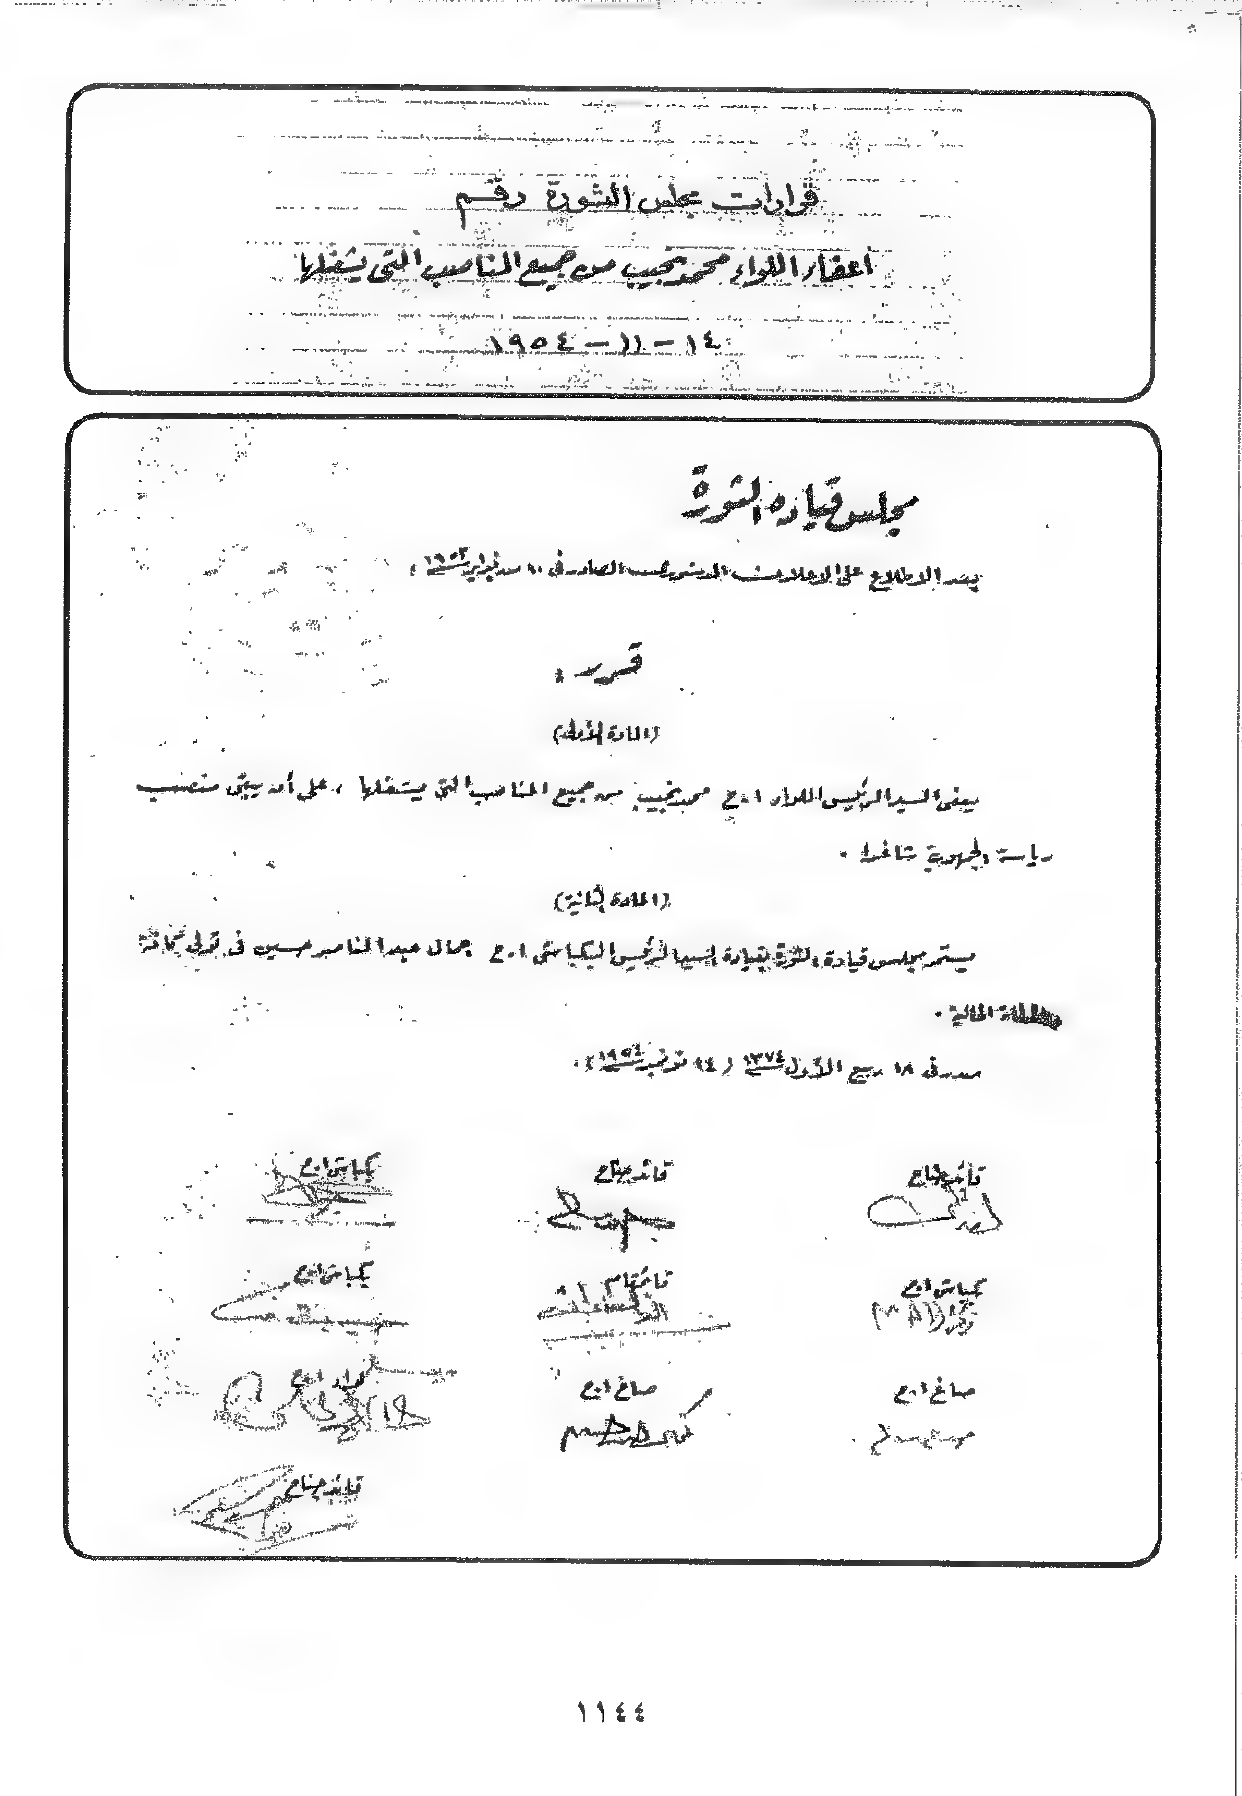 قرارات مجلس الثورة رقم
أعفاء اللواء محمد نجيب من جميع المناصب التى يشغلها
١٤ - ١١ - ١٩٥٤
مجلس قيادة الثورة
بعد الاطلاع على الاعلان الدستورى الصادر فى ١٠ من فبراير سنة ١٩٥٣ ؛
قرر :
(المادة الأولى)
يعفى السيد الرئيس اللواء ا.ح محمد نجيب من جميع المناصب التى يشغلها ، على أن يبقى منصب
رياسة الجمهورية شاغرا .
(المادة الثانية)
يستمر مجلس قيادة الثورة بقيادة السيد الرئيس البكباشى ا.ح جمال عبد الناصر حسين فى تولى كافة
السلطات الحالية .
صدر فى ١٨ ربيع الأول سنة ١٣٧٤ (١٤ نوفمبر سنة ١٩٥٤) .
قائد جناح قائد جناح بكباشى ا.ح
بكباشى ا.ح قائمقام بكباشى ا.ح
زكريا
صاغ ا.ح صاغ ا.ح لواء ا.ح
قائد جناح
١١٤٤